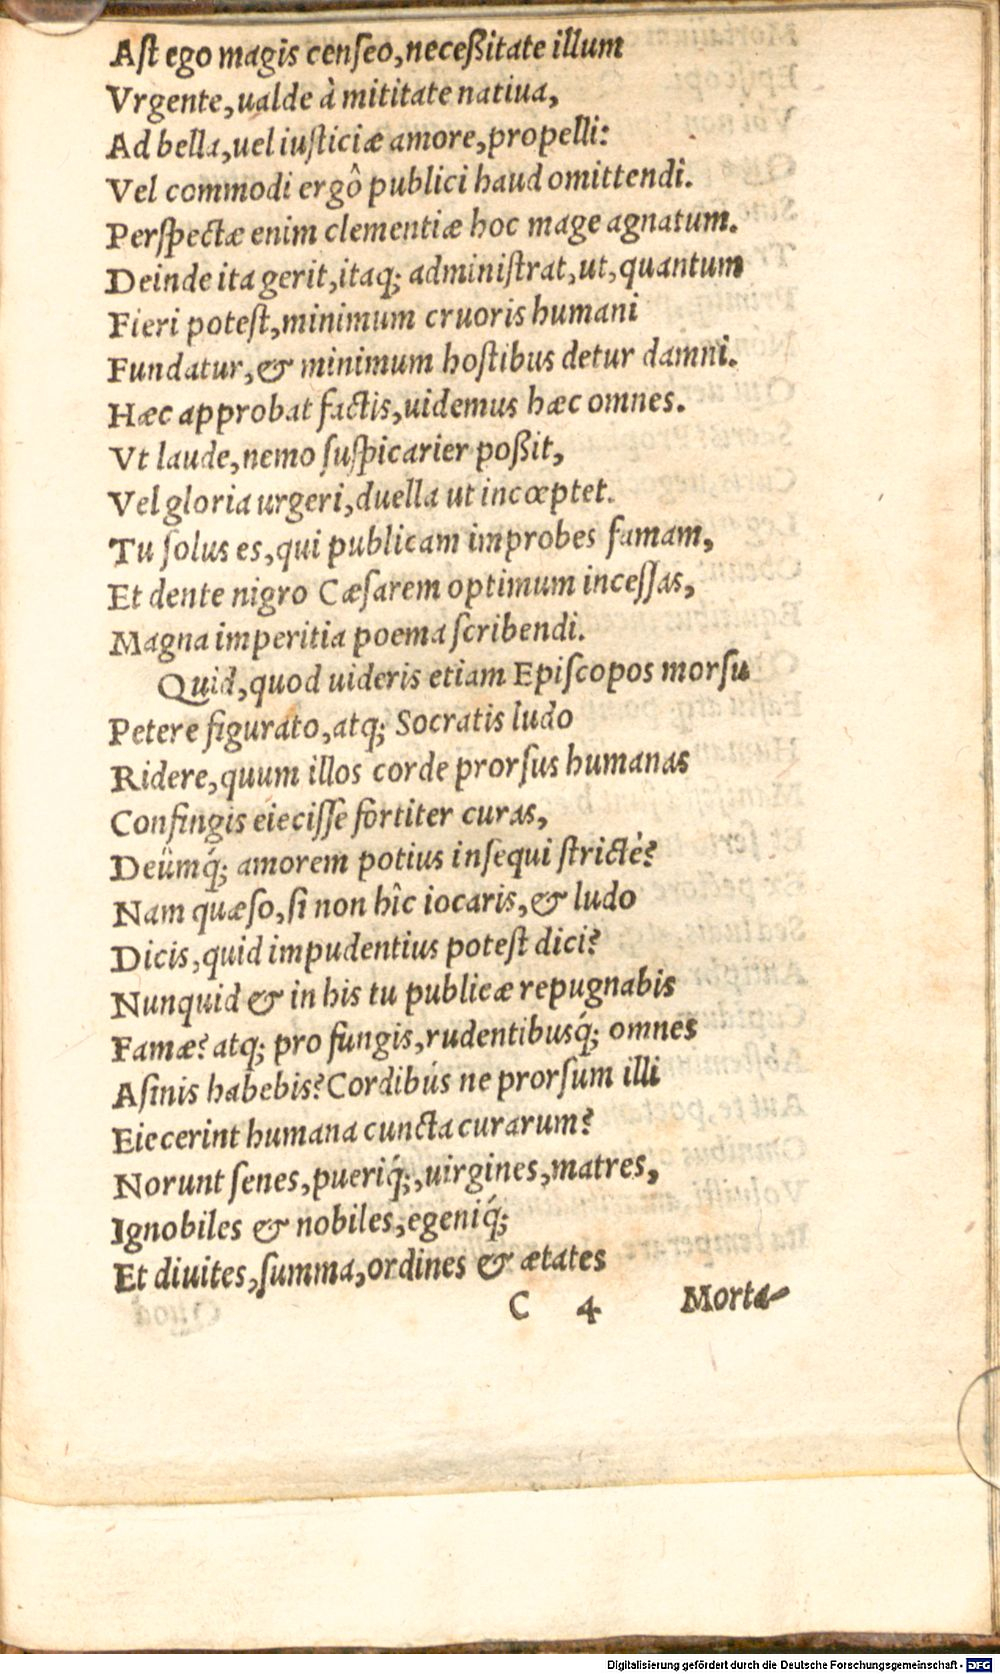 Aſt ego magis cenſeo, neceßitate illum
Vrgente, ualde à mititate natiua,
Ad bella, uel iuſticiæ amore, propelli:
Vel commodi ergô publici haud omittendi.
Perſpectæ enim clementiæ hoc mage agnatum.
Deinde ita gerit, itaq; adminiſtrat, ut, quantum
Fieri poteſt, minimum cruoris humani
Fundatur, & minimum hoſtibus detur damni.
Hæc approbat factis, uidemus hæc omnes.
Vt laude, nemo ſuſpicarier poßit,
Vel gloria urgeri, duella ut incœptet.
Tu ſolus es, qui publicam improbes famam,
Et dente nigro Cæſarem optimum inceſſas,
Magna imperitia poema ſcribendi.
Quid, quod uideris etiam Epiſcopos morſu
Petere figurato, atq; Socratis ludo
Ridere, quum illos corde prorſus humanas
Confingis eieciſſe fortiter curas,
Deûmq́; amorem potius inſequi ſtrictè?
Nam quæſo, ſi non hîc iocaris, & ludo
Dicis, quid impudentius poteſt dici?
Nunquid & in his tu publicæ repugnabis
Famæ? atq; pro fungis, rudentibusq́; omnes
Aſinis habebis? Cordibús ne prorſum illi
Eiecerint humana cuncta curarum?
Norunt ſenes, pueriq́;, uirgines, matres,
Ignobiles & nobiles, egeniq́;
Et diuites, ſumma, ordines & ætates
C 4 Morta-
Digitalisierung gefördert durch die Deutsche Forschungsgemeinschaft - DFG